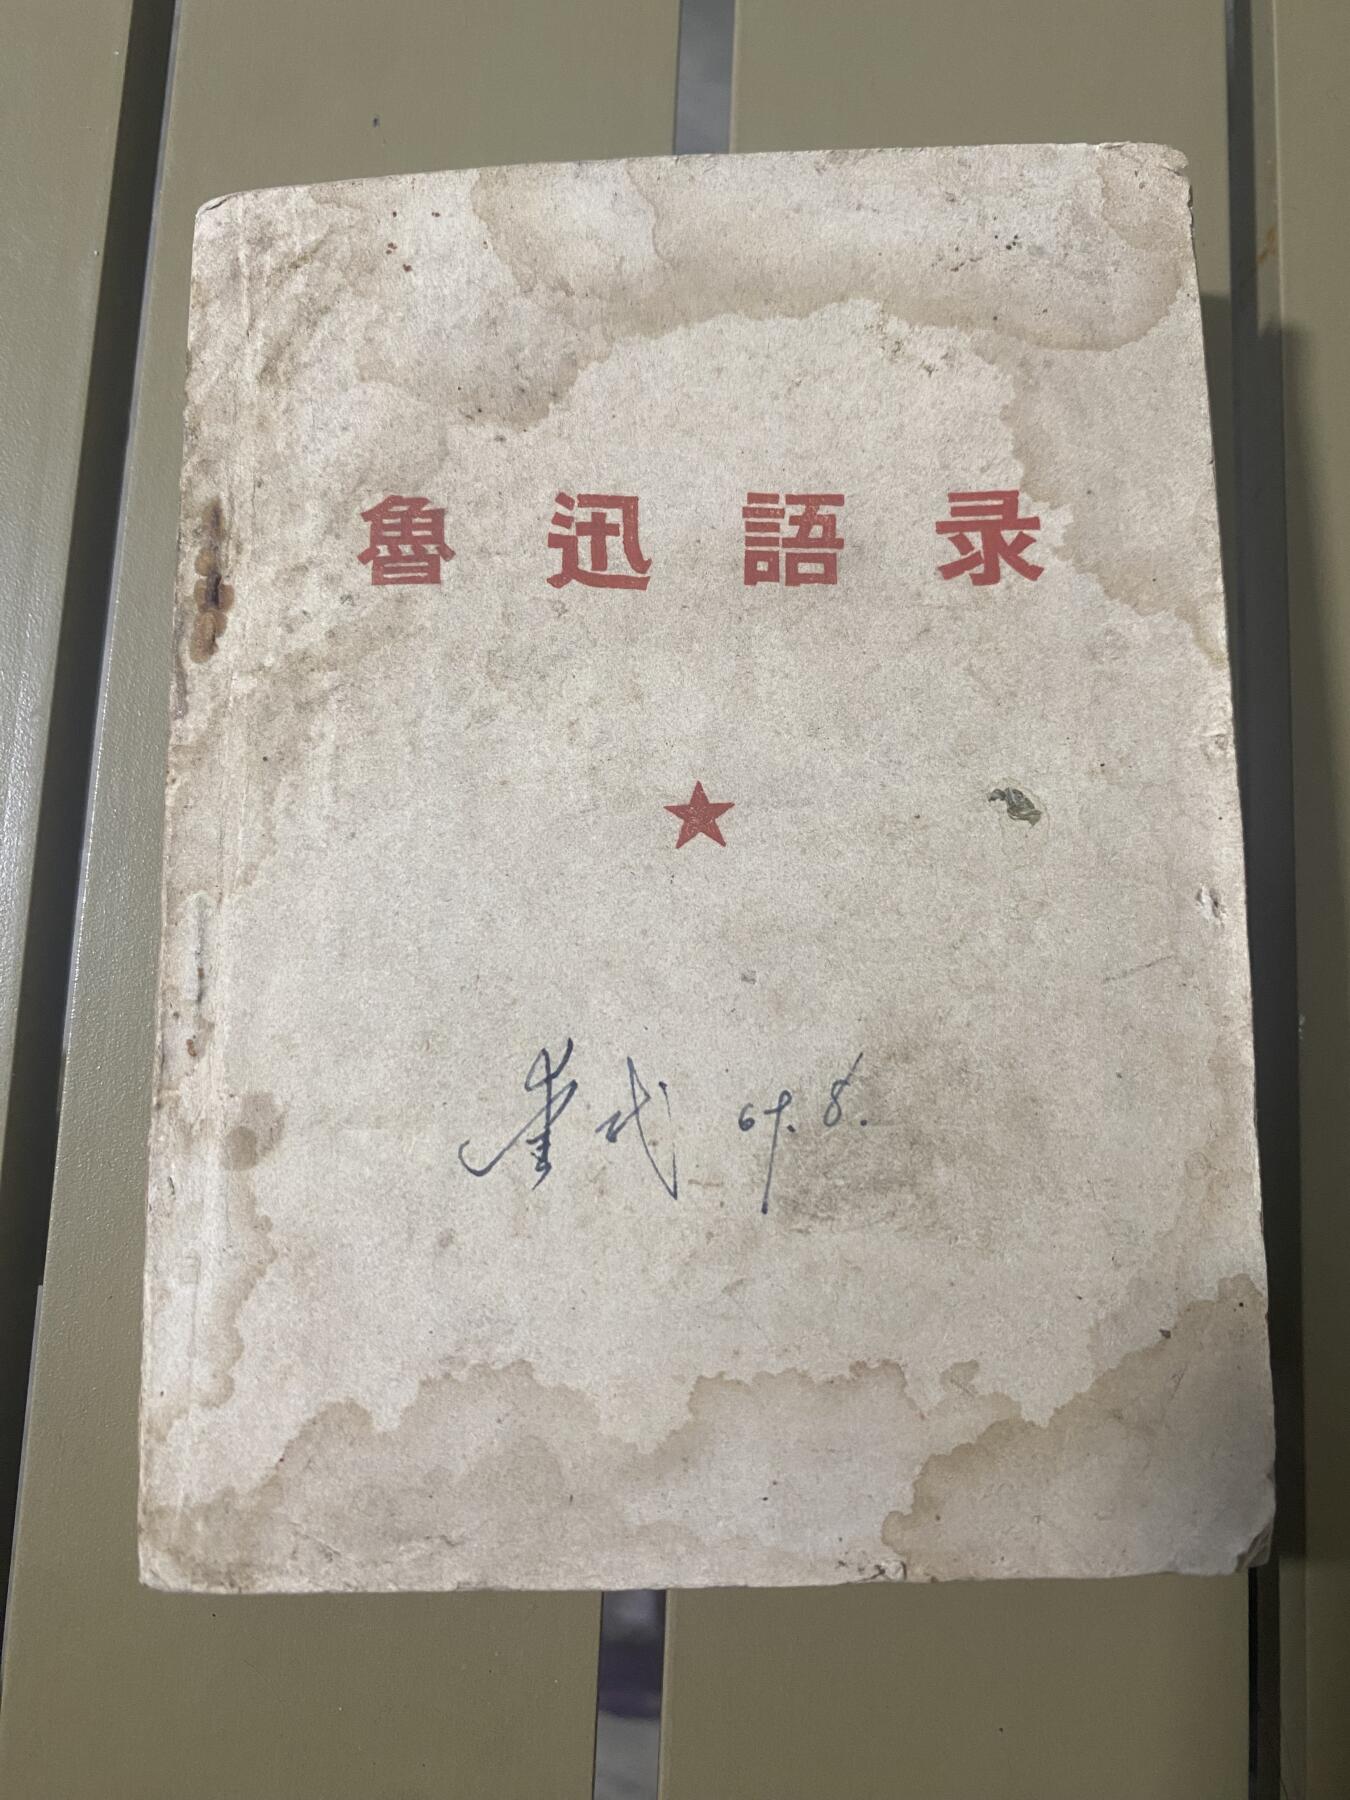 魯迅語录
69.8.